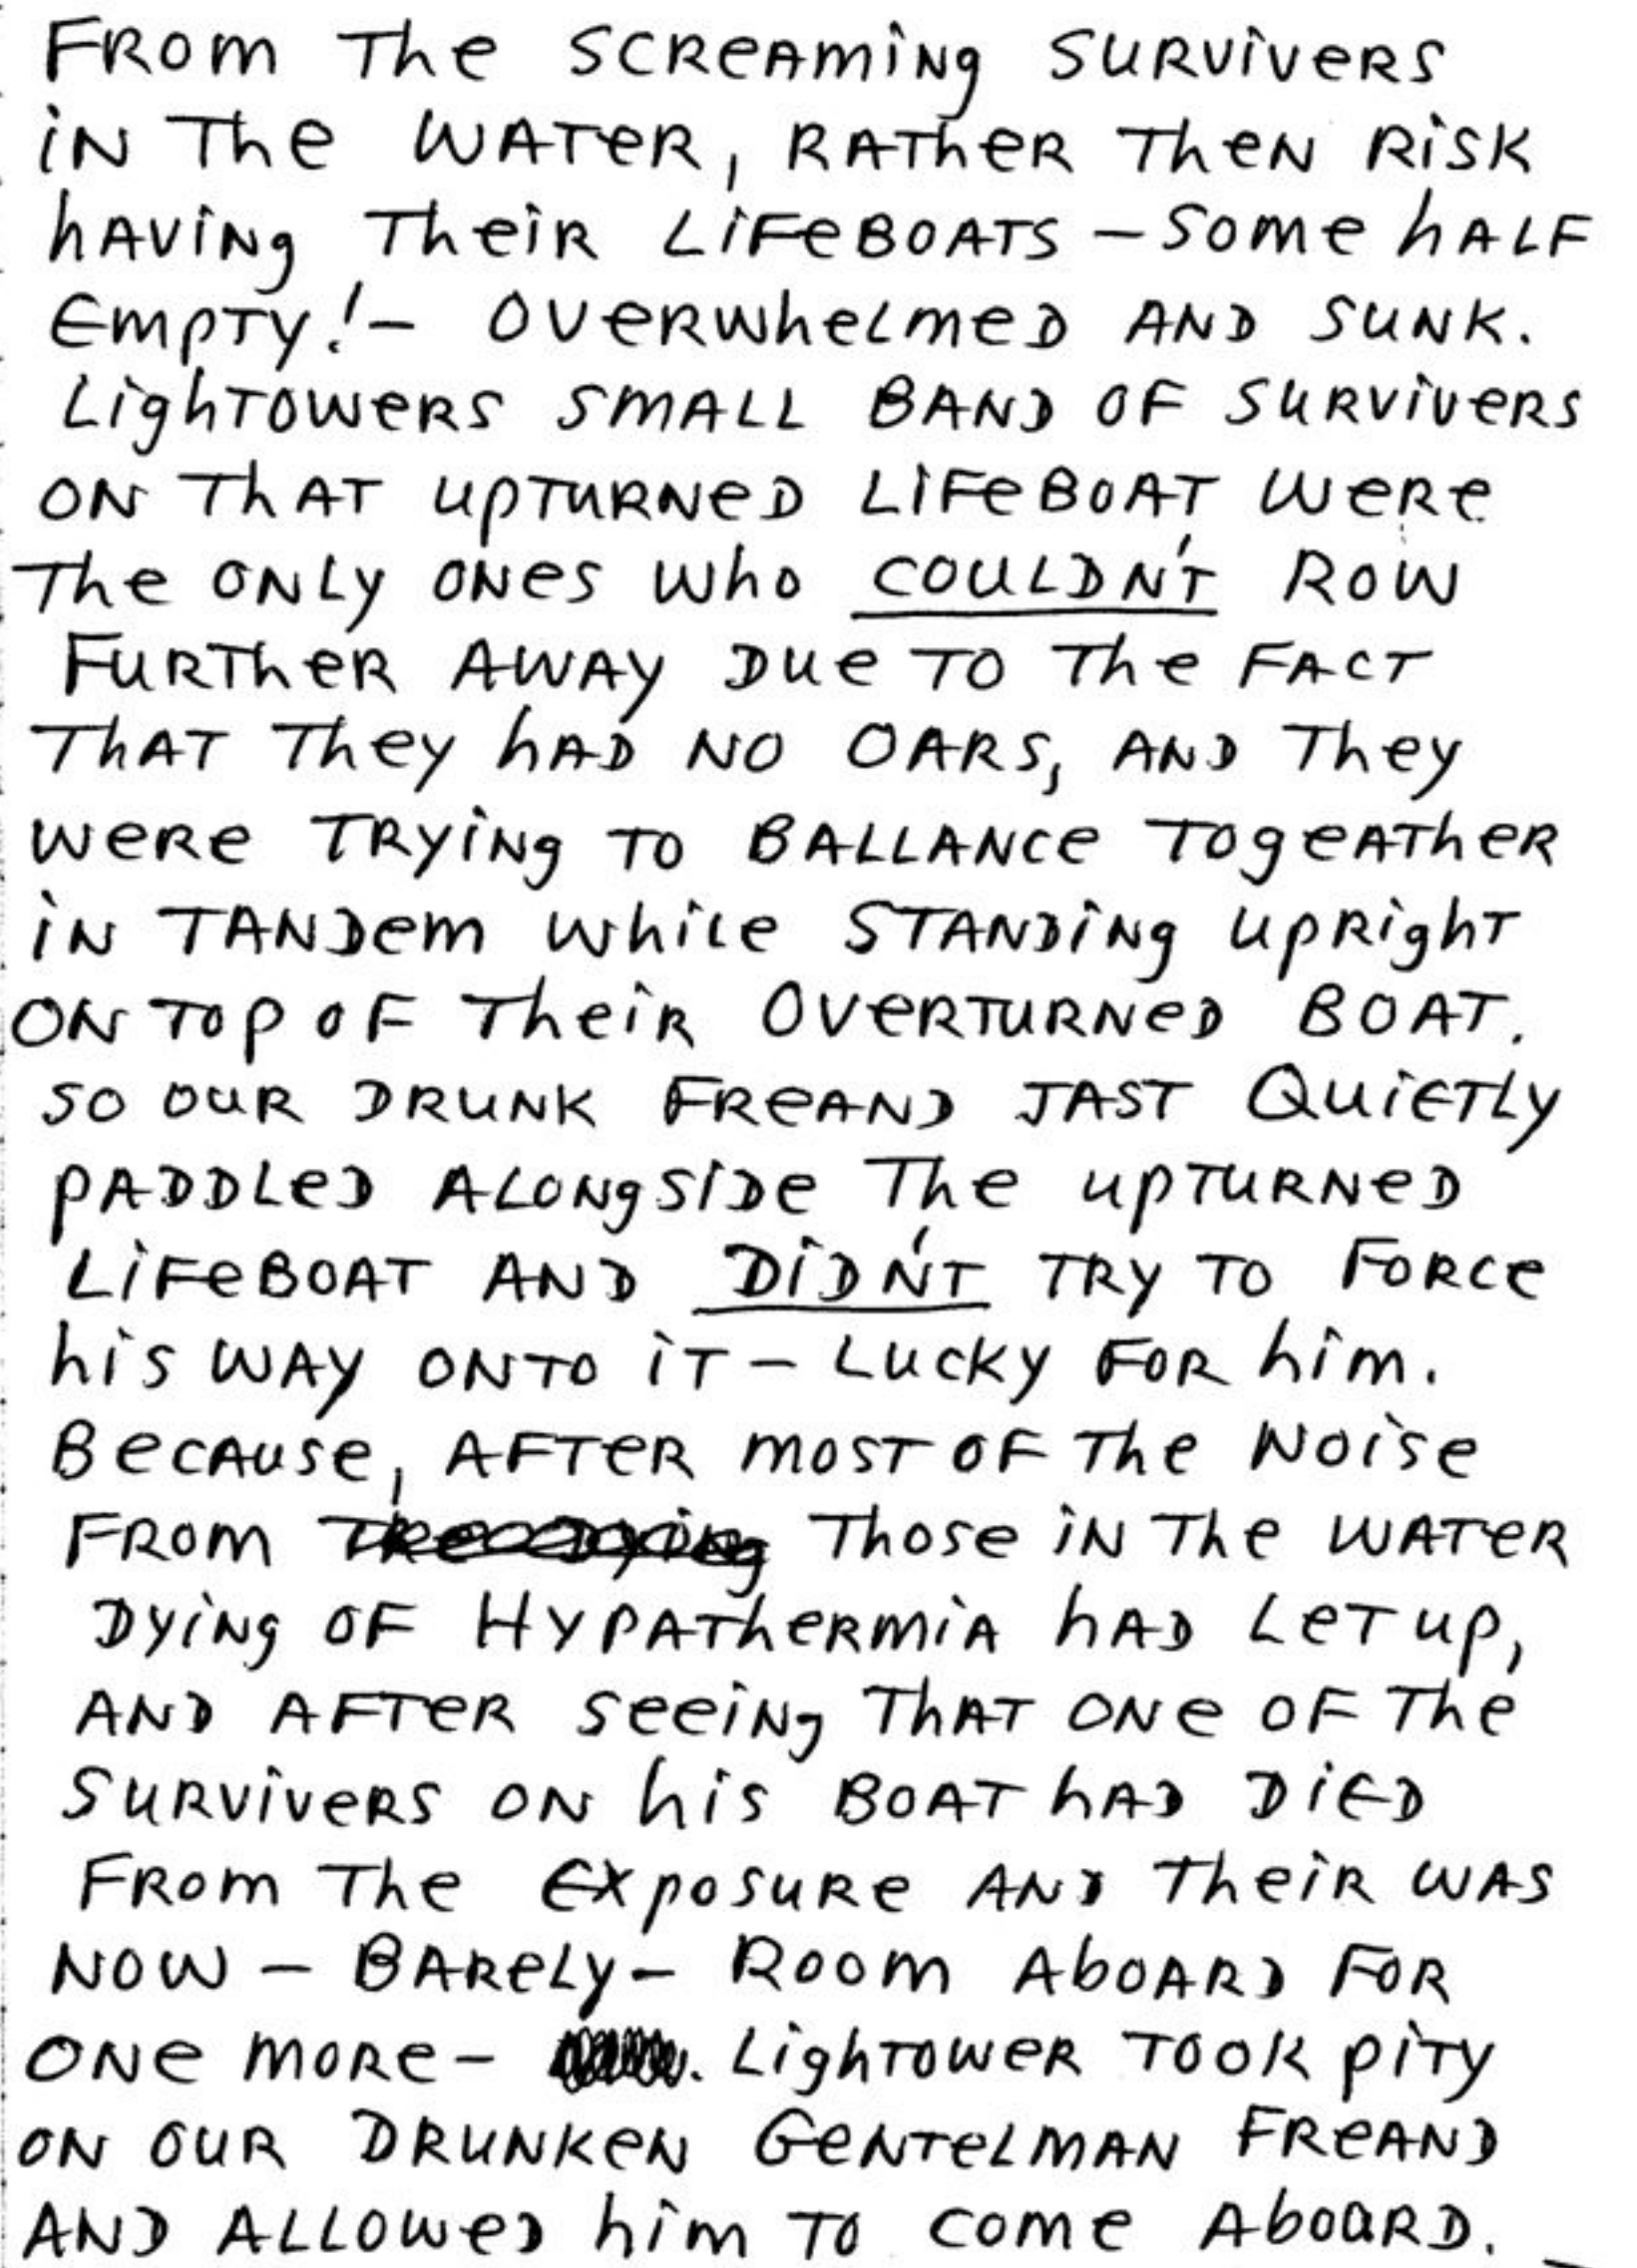 FROM The SCREAMING SURVIVERS
IN The WATER, RATHER THEN RISK
HAVING THEIR LIFEBOATS – SOME HALF
EMPTY! – OVERWHELMED AND SUNK.
LIGHTOWERS SMALL BAND OF SURVIVERS
ON THAT UPTURNED LIFEBOAT WERE
THE ONLY ONES WHO COULDN'T ROW
FURTHER AWAY DUE TO THE FACT
THAT THEY HAD NO OARS, AND THEY
WERE TRYING TO BALLANCE TOGEATHER
IN TANDEM WHILE STANDING UPRIGHT
ON TOP OF THEIR OVERTURNED BOAT.
SO OUR DRUNK FREAND JAST QUIETLY
PADDLED ALONGSIDE THE UPTURNED
LIFEBOAT AND DIDN'T TRY TO FORCE
HIS WAY ONTO IT – LUCKY FOR HIM.
BECAUSE, AFTER MOST OF THE NOISE
FROM THOSE IN THE WATER
DYING OF HYPATHERMIA HAD LET UP,
AND AFTER SEEING THAT ONE OF THE
SURVIVERS ON HIS BOAT HAD DIED
FROM THE EXPOSURE AND THEIR WAS
NOW – BARELY – ROOM ABOARD FOR
ONE MORE – LIGHTOWER TOOK PITY
ON OUR DRUNKEN GENTELMAN FREAND
AND ALLOWED HIM TO COME ABOARD.